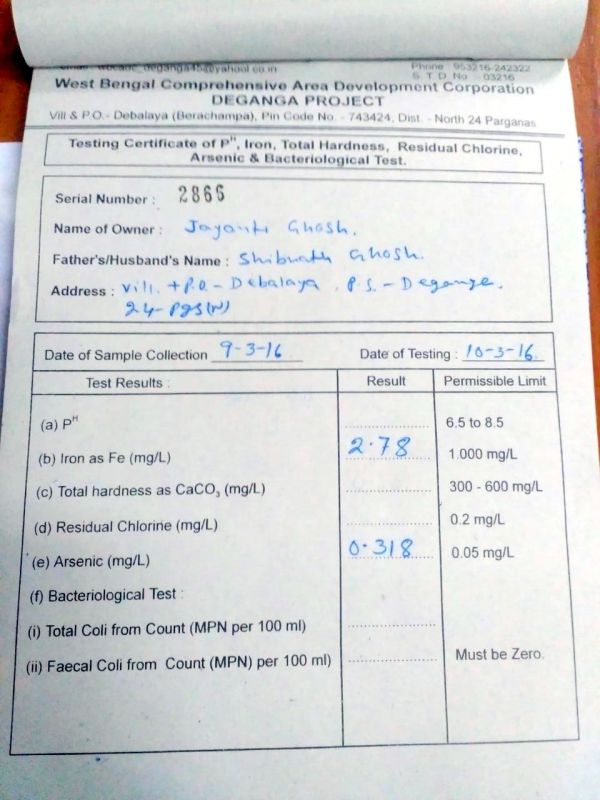 Email : wbcadc_deganga45@yahool.co.in Phone : 953216-242322
S. T. D. No. - 03216
West Bengal Comprehensive Area Development Corporation
DEGANGA PROJECT
Vill & P.O.- Debalaya (Berachampa), Pin Code No. - 743424, Dist. - North 24 Parganas
Testing Certificate of Pᴴ, Iron, Total Hardness, Residual Chlorine,
Arsenic & Bacteriological Test.
Serial Number : 2866
Name of Owner : Jayanti Ghosh.
Father's/Husband's Name : Shibnath Ghosh.
Address : Vill. + P.O. - Debalaya, P.S. - Deganga.
24-Pgs(N)
Date of Sample Collection 9-3-16 Date of Testing : 10-3-16.
Test Results : Result Permissible Limit
(a) Pᴴ 6.5 to 8.5
(b) Iron as Fe (mg/L) 2.78 1.000 mg/L
(c) Total hardness as CaCO₃ (mg/L) 300 - 600 mg/L
(d) Residual Chlorine (mg/L) 0.2 mg/L
(e) Arsenic (mg/L) 0.318 0.05 mg/L
(f) Bacteriological Test :
(i) Total Coli from Count (MPN per 100 ml)
(ii) Faecal Coli from Count (MPN) per 100 ml) Must be Zero.